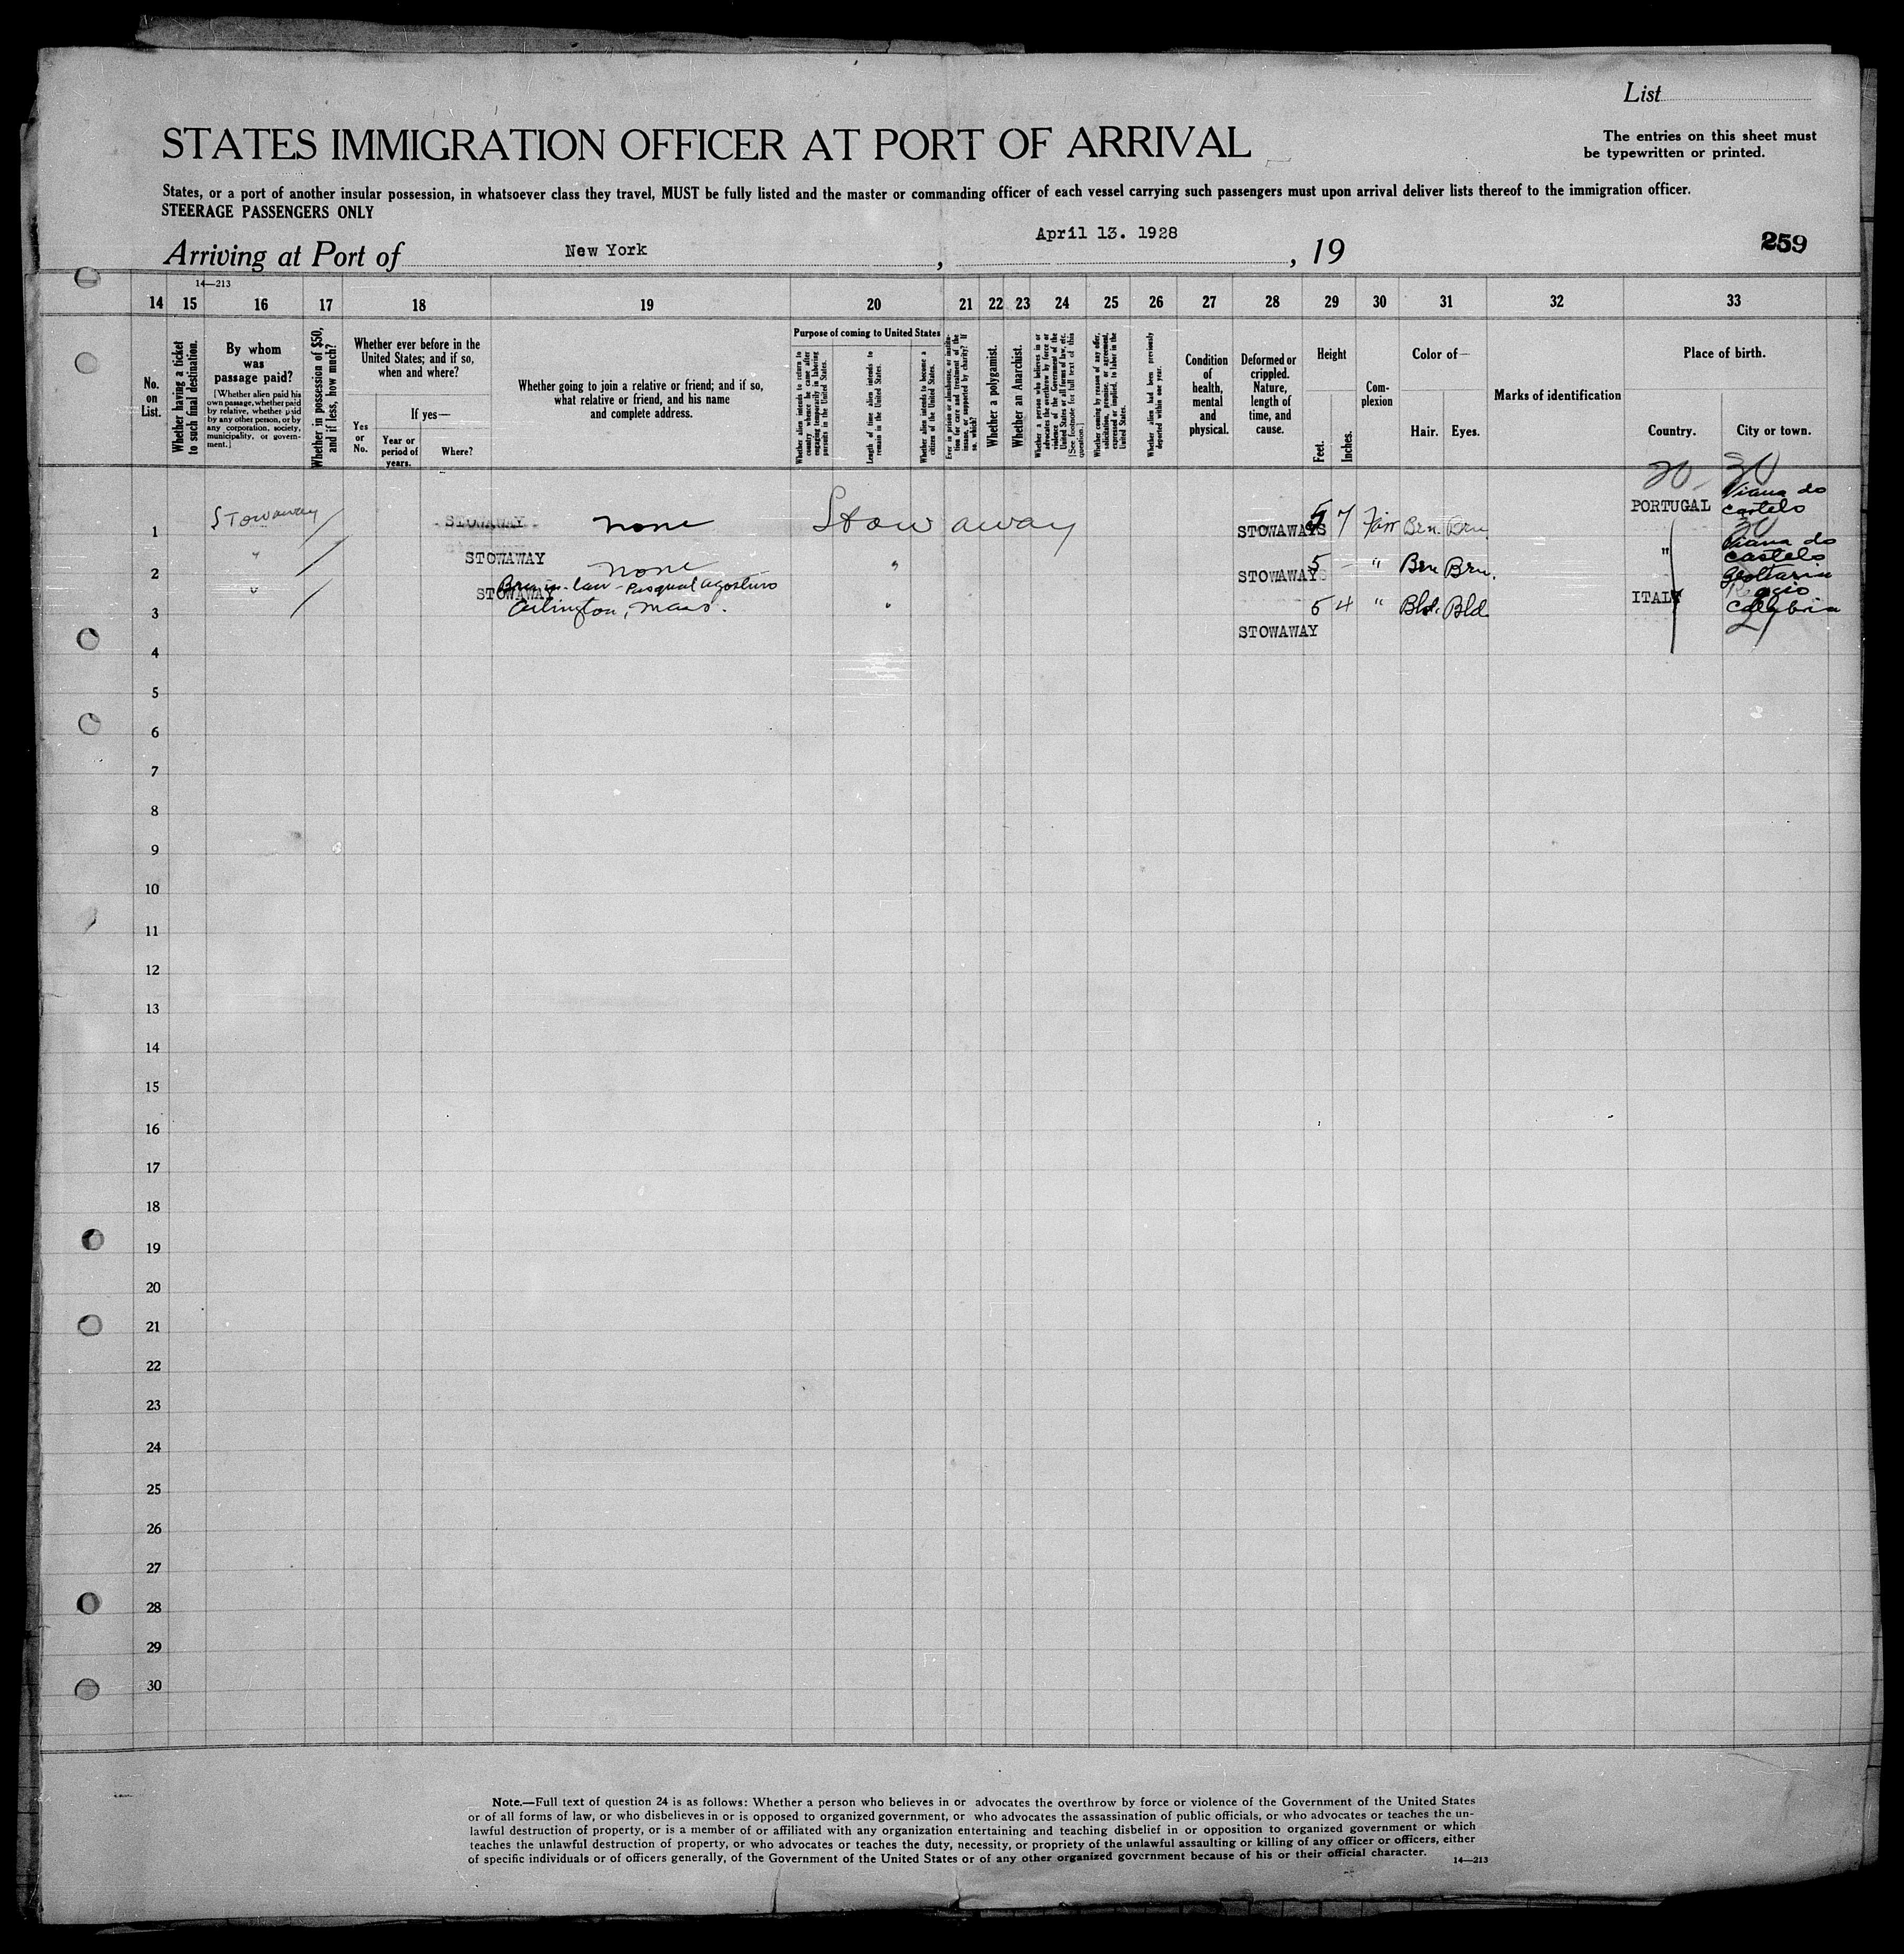 List
STATES IMMIGRATION OFFICER AT PORT OF ARRIVAL
The entries on this sheet must
be typewritten or printed.
States, or a port of another insular possession, in whatsoever class they travel, MUST be fully listed and the master or commanding officer of each vessel carrying such passengers must upon arrival deliver lists thereof to the immigration officer.
STEERAGE PASSENGERS ONLY
Arriving at Port of New York, April 13. 1928, 19
259
14—213
14 15 16 17 18 19 20 21 22 23 24 25 26 27 28 29 30 31 32 33
No. on List.
Whether having a ticket to such final destination.
By whom was passage paid?
[Whether alien paid his own passage, whether paid by relative, whether paid by any other person, or by any corporation, society, municipality, or government.]
Whether in possession of $50, and if less, how much?
Whether ever before in the United States; and if so, when and where?
Yes or No.
If yes—
Year or period of years.
Where?
Whether going to join a relative or friend; and if so, what relative or friend, and his name and complete address.
Purpose of coming to United States
Whether alien intends to return to country whence he came after engaging temporarily in laboring pursuits in the United States.
Length of time alien intends to remain in the United States.
Whether alien intends to become a citizen of the United States.
Ever in prison or almshouse, or institution for care and treatment of the insane, or supported by charity? If so, which?
Whether a polygamist.
Whether an Anarchist.
Whether a person who believes in or advocates the overthrow by force or violence of the Government of the United States or all forms of law, etc. [See footnote for full text of this question.]
Whether coming by reason of any offer, solicitation, promise, or agreement, expressed or implied, to labor in the United States.
Whether alien had been previously deported within one year.
Condition of health, mental and physical.
Deformed or crippled. Nature, length of time, and cause.
Height
Feet.
Inches.
Complexion
Color of—
Hair. Eyes.
Marks of identification
Place of birth.
Country.
City or town.
20 30
1 Stowaway / STOWAWAY none Stow away STOWAWAYS 5 7 Fair Brn. Brn. PORTUGAL Viana do Castelo
30
2 " / STOWAWAY none " STOWAWAYS 5 - " Brn Brn. " Viana do Castelo
3 " / STOWAWAY Bro-in-law - Pasqual Agostino
Arlington, Mass. " STOWAWAY 5 4 " Bld. Bld. ITALY Calabria
21
4
5
6
7
8
9
10
11
12
13
14
15
16
17
18
19
20
21
22
23
24
25
26
27
28
29
30
Note.—Full text of question 24 is as follows: Whether a person who believes in or advocates the overthrow by force or violence of the Government of the United States
or of all forms of law, or who disbelieves in or is opposed to organized government, or who advocates the assassination of public officials, or who advocates or teaches the un-
lawful destruction of property, or is a member of or affiliated with any organization entertaining and teaching disbelief in or opposition to organized government or which
teaches the unlawful destruction of property, or who advocates or teaches the duty, necessity, or propriety of the unlawful assaulting or killing of any officer or officers, either
of specific individuals or of officers generally, of the Government of the United States or of any other organized government because of his or their official character.
14—213